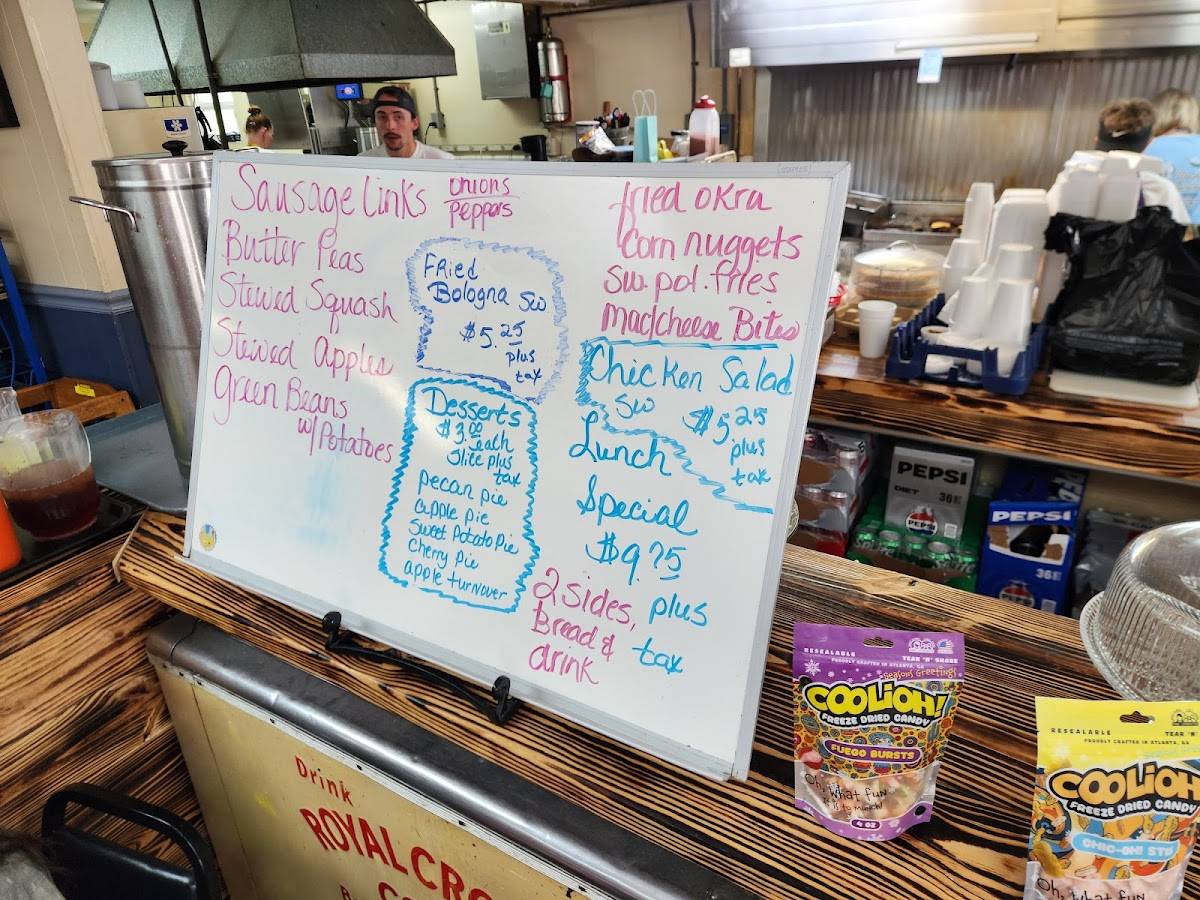 Sausage Links onions
peppers
Butter Peas
Stewed Squash
Stewed Apples
green Beans
w/Potatoes
FRied
Bologna SW
$5.25
plus
tax
Desserts
$3.00 each
slice plus
tax
pecan pie
apple pie
Sweet Potato Pie
Cherry Pie
apple turnover
fried okra
Corn nuggets
Sw. pot. fries
Mac/cheese Bites
Chicken Salad
SW $5.25
plus
tax
Lunch
Special
$9.75
plus
tax
2 sides,
Bread &
drink
PEPSI
DIET 36
pepsi
PEPSI
36
Drink
ROYAL CRO
RESEALABLE TEAR 'N' SHARE
PROUDLY CRAFTED IN ATLANTA, GA
Seasons Greetings
COOLiOH!
FREEZE DRIED CANDY
FUEGO BURSTS
Oh, what fun
it is to munch!
4 OZ
RESEALABLE TEAR 'N'
PROUDLY CRAFTED IN ATLANTA, GA
COOLiOH
FREEZE DRIED CANDY
CHIC-OH! STI
Oh, what fun